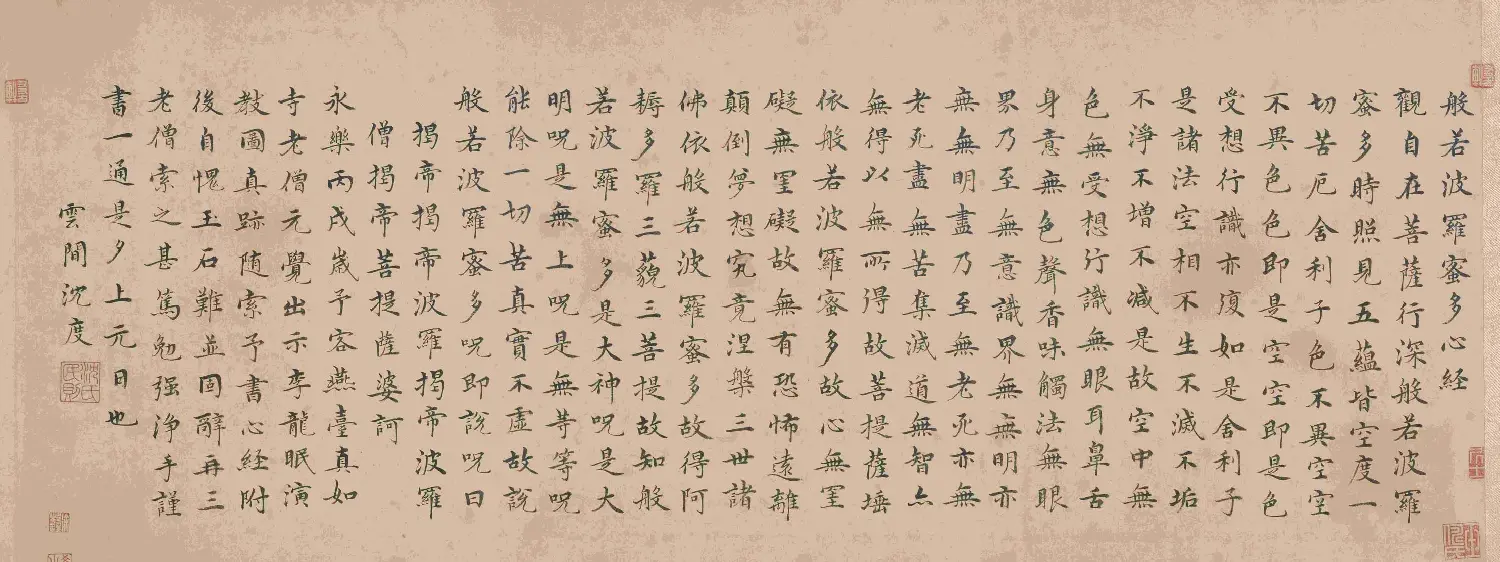 般若波羅蜜多心経
觀自在菩薩行深般若波羅
蜜多時照見五蘊皆空度一
切苦厄舍利子色不異空空
不異色色即是空空即是色
受想行識亦復如是舍利子
是諸法空相不生不滅不垢
不淨不增不減是故空中無
色無受想行識無眼耳鼻舌
身意無色聲香味觸法無眼
界乃至無意識界無無明亦
無無明盡乃至無老死亦無
老死盡無苦集滅道無智亦
無得以無所得故菩提薩埵
依般若波羅蜜多故心無罣
礙無罣礙故無有恐怖遠離
顛倒夢想究竟涅槃三世諸
佛依般若波羅蜜多故得阿
耨多羅三藐三菩提故知般
若波羅蜜多是大神呪是大
明呪是無上呪是無等等呪
能除一切苦真實不虛故說
般若波羅蜜多呪即說呪曰
揭帝揭帝波羅揭帝波羅
僧揭帝菩提薩婆訶
永樂丙戌歲予客燕臺真如
寺老僧元覺出示李龍眠演
教圖真跡随索予書心経附
後自愧玉石難並固辭再三
老僧索之甚篤勉强浄手謹
書一通是夕上元日也
雲間沈度
沈氏民則